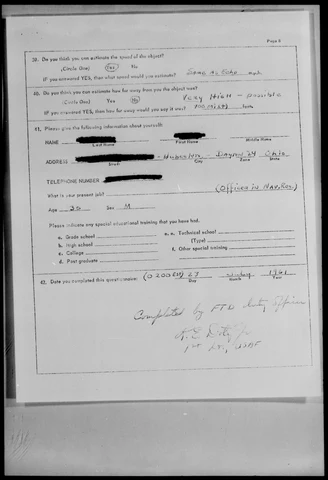 Page 5
39. Do you think you can estimate the speed of the object?
(Circle One) Yes No
IF you answered YES, then what speed would you estimate? Same as Echo m.p.h.
40. Do you think you can estimate how far away from you the object was?
(Circle One) Yes No Very High - possible
IF you answered YES, then how far away would you say it was? feet.
41. Please give the following information about yourself:
NAME
Last Name First Name Middle Name
ADDRESS Dayton 24 Ohio
Street City Zone State
TELEPHONE NUMBER
What is your present job? (Officer in Nav. Res.)
Age 38 Sex M
Please indicate any special educational training that you have had.
a. Grade school e. Technical school
b. High school (Type)
c. College f. Other special training
d. Post graduate
42. Date you completed this questionnaire: 27 1961
Day Month Year
Completed by FTD Duty Officer
1st Lt, USAF